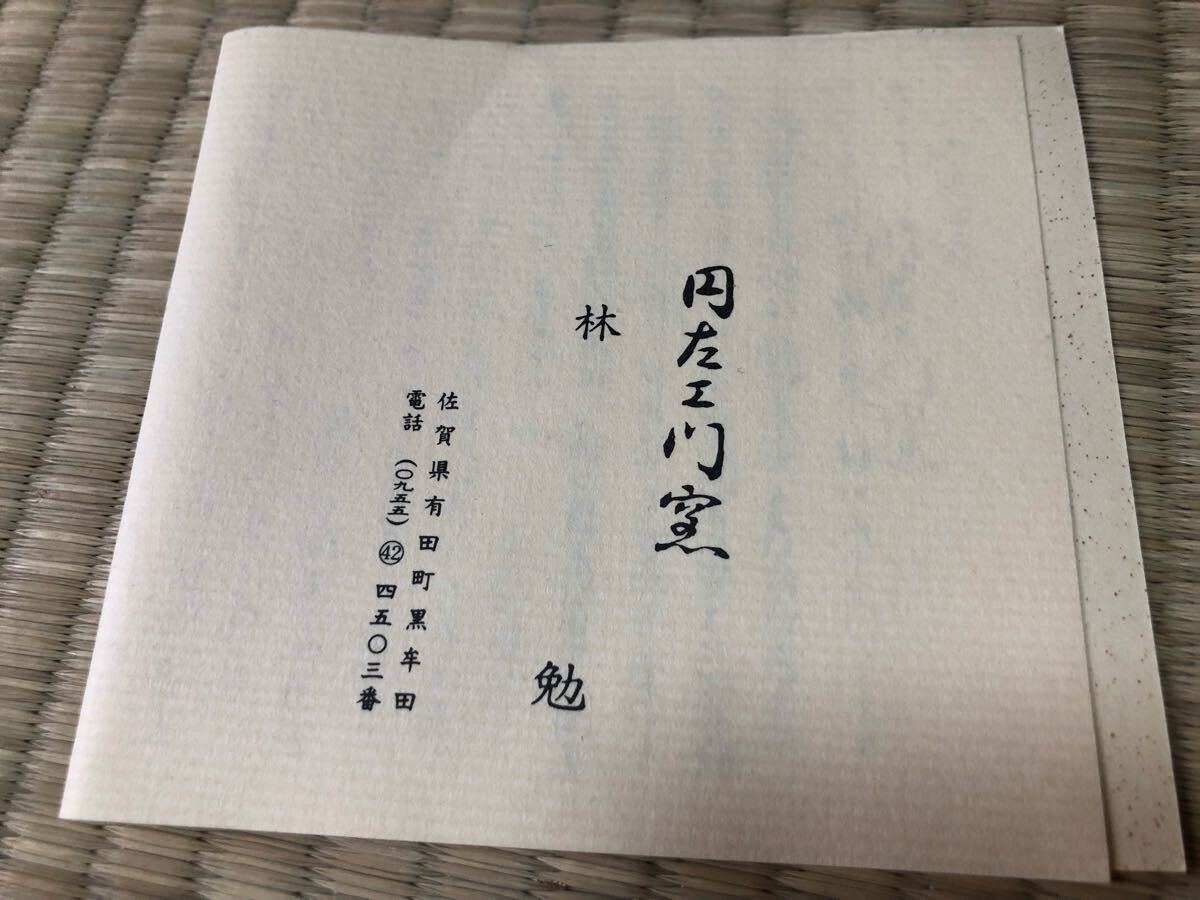 円左エ門窯
林 勉
佐賀県有田町黒牟田
電話 (〇九五五) ㊷ 四五〇三番